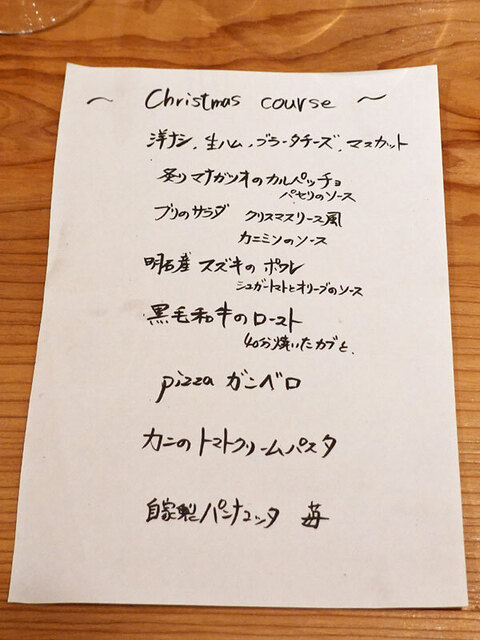 ～ Christmas course ～
洋ナシ、生ハム、ブラータチーズ、マスカット
炙りマナガツオのカルパッチョ
パセリのソース
ブリのサラダ クリスマスリース風
カニミソのソース
明石産 スズキの ポワレ
シュガートマトとオリーブのソース
黒毛和牛のロースト
40分焼いたカブと、
pizza ガンベロ
カニのトマトクリームパスタ
自家製パンナコッタ 苺